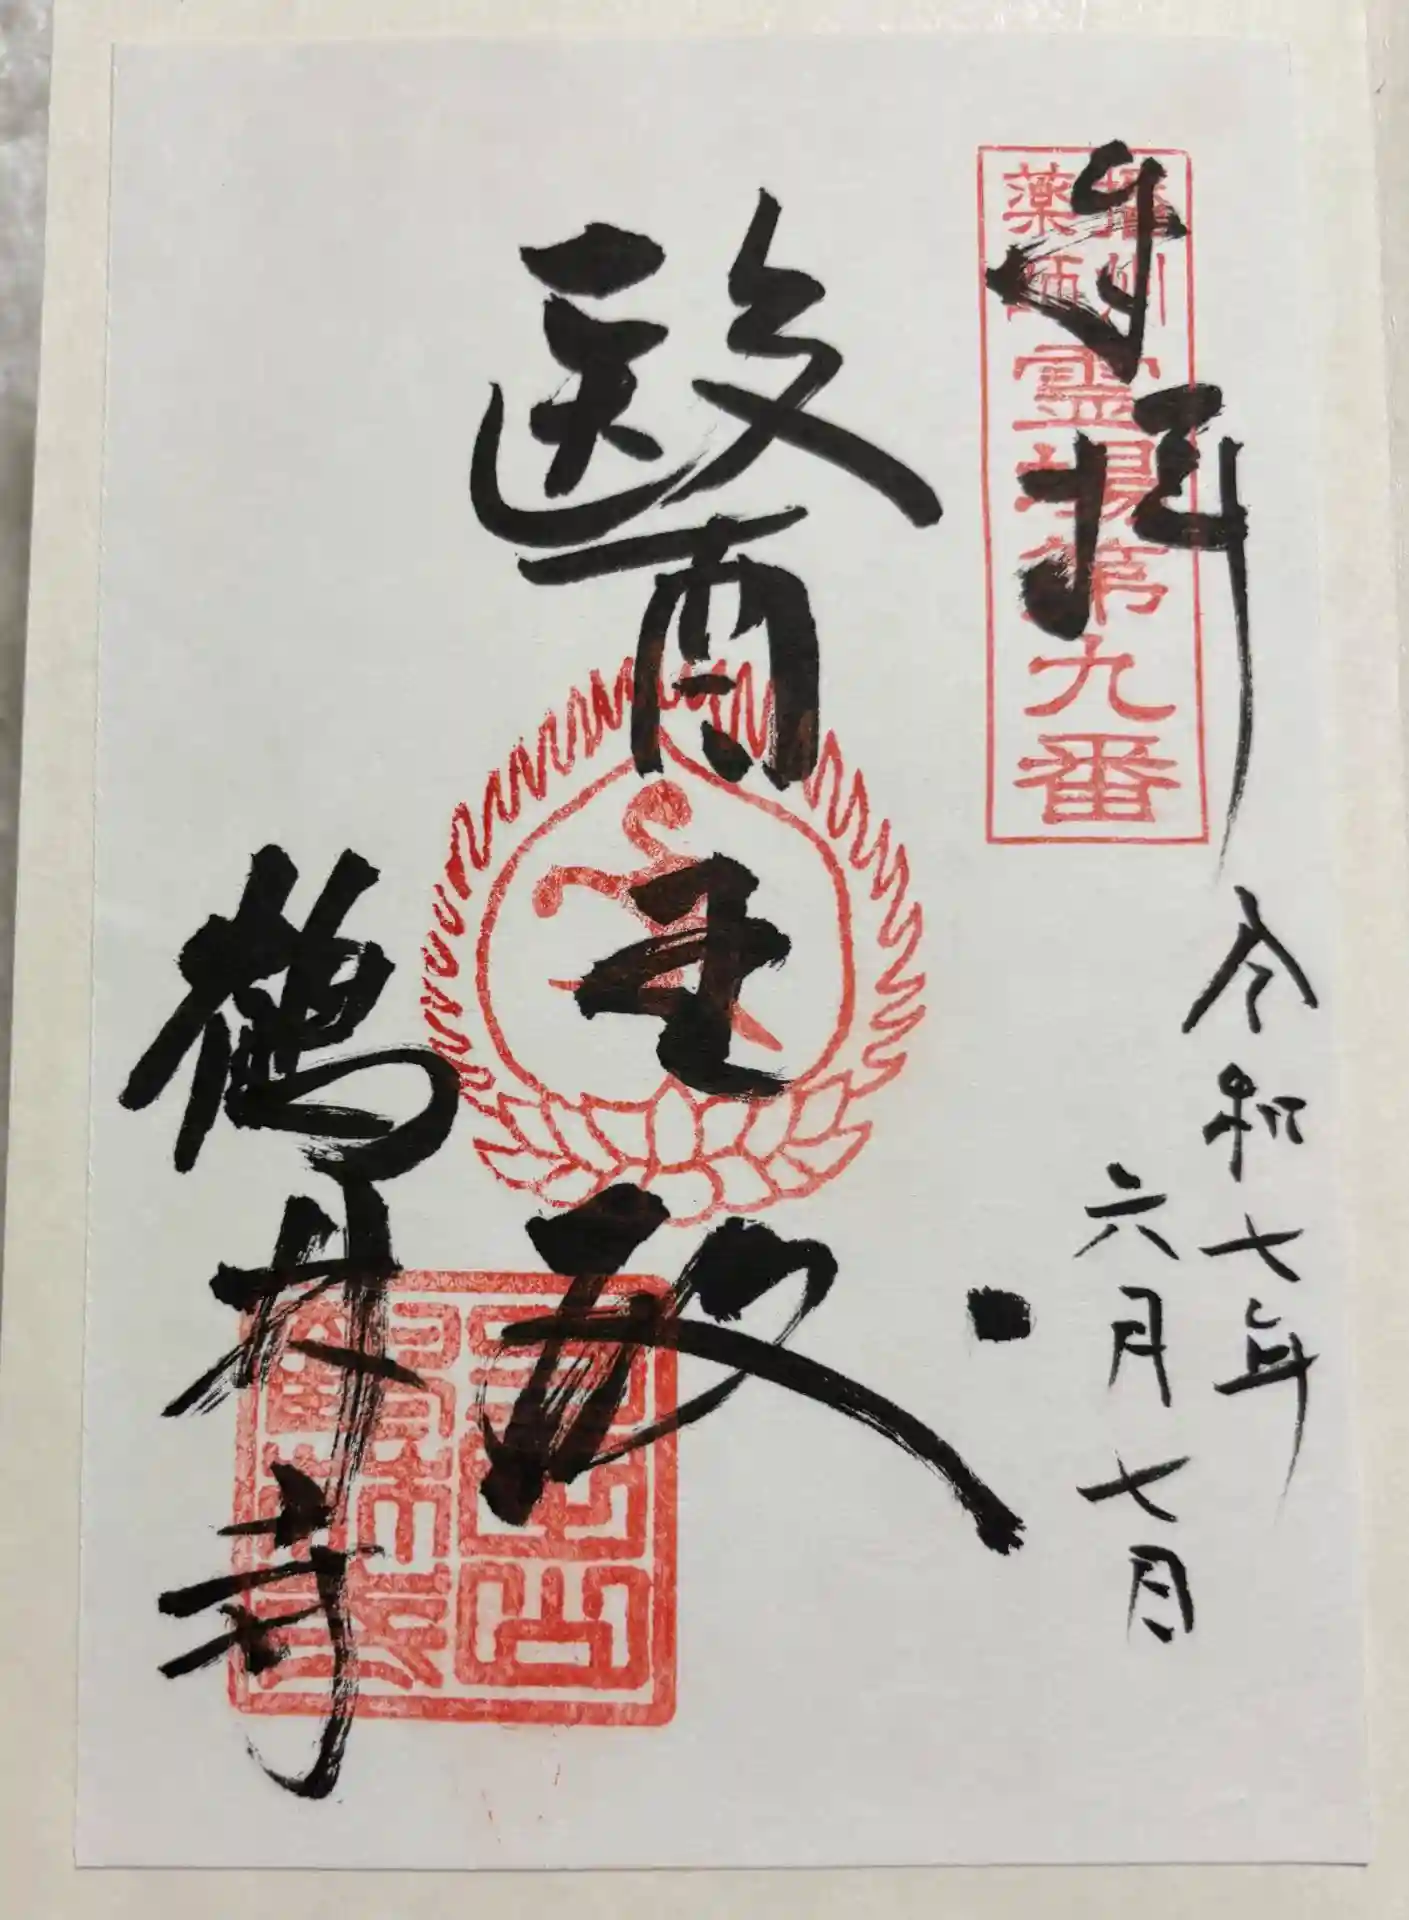 奉拝
播州
薬師
霊場第九番
令和七年
六月七日
醫王殿
鶴林寺